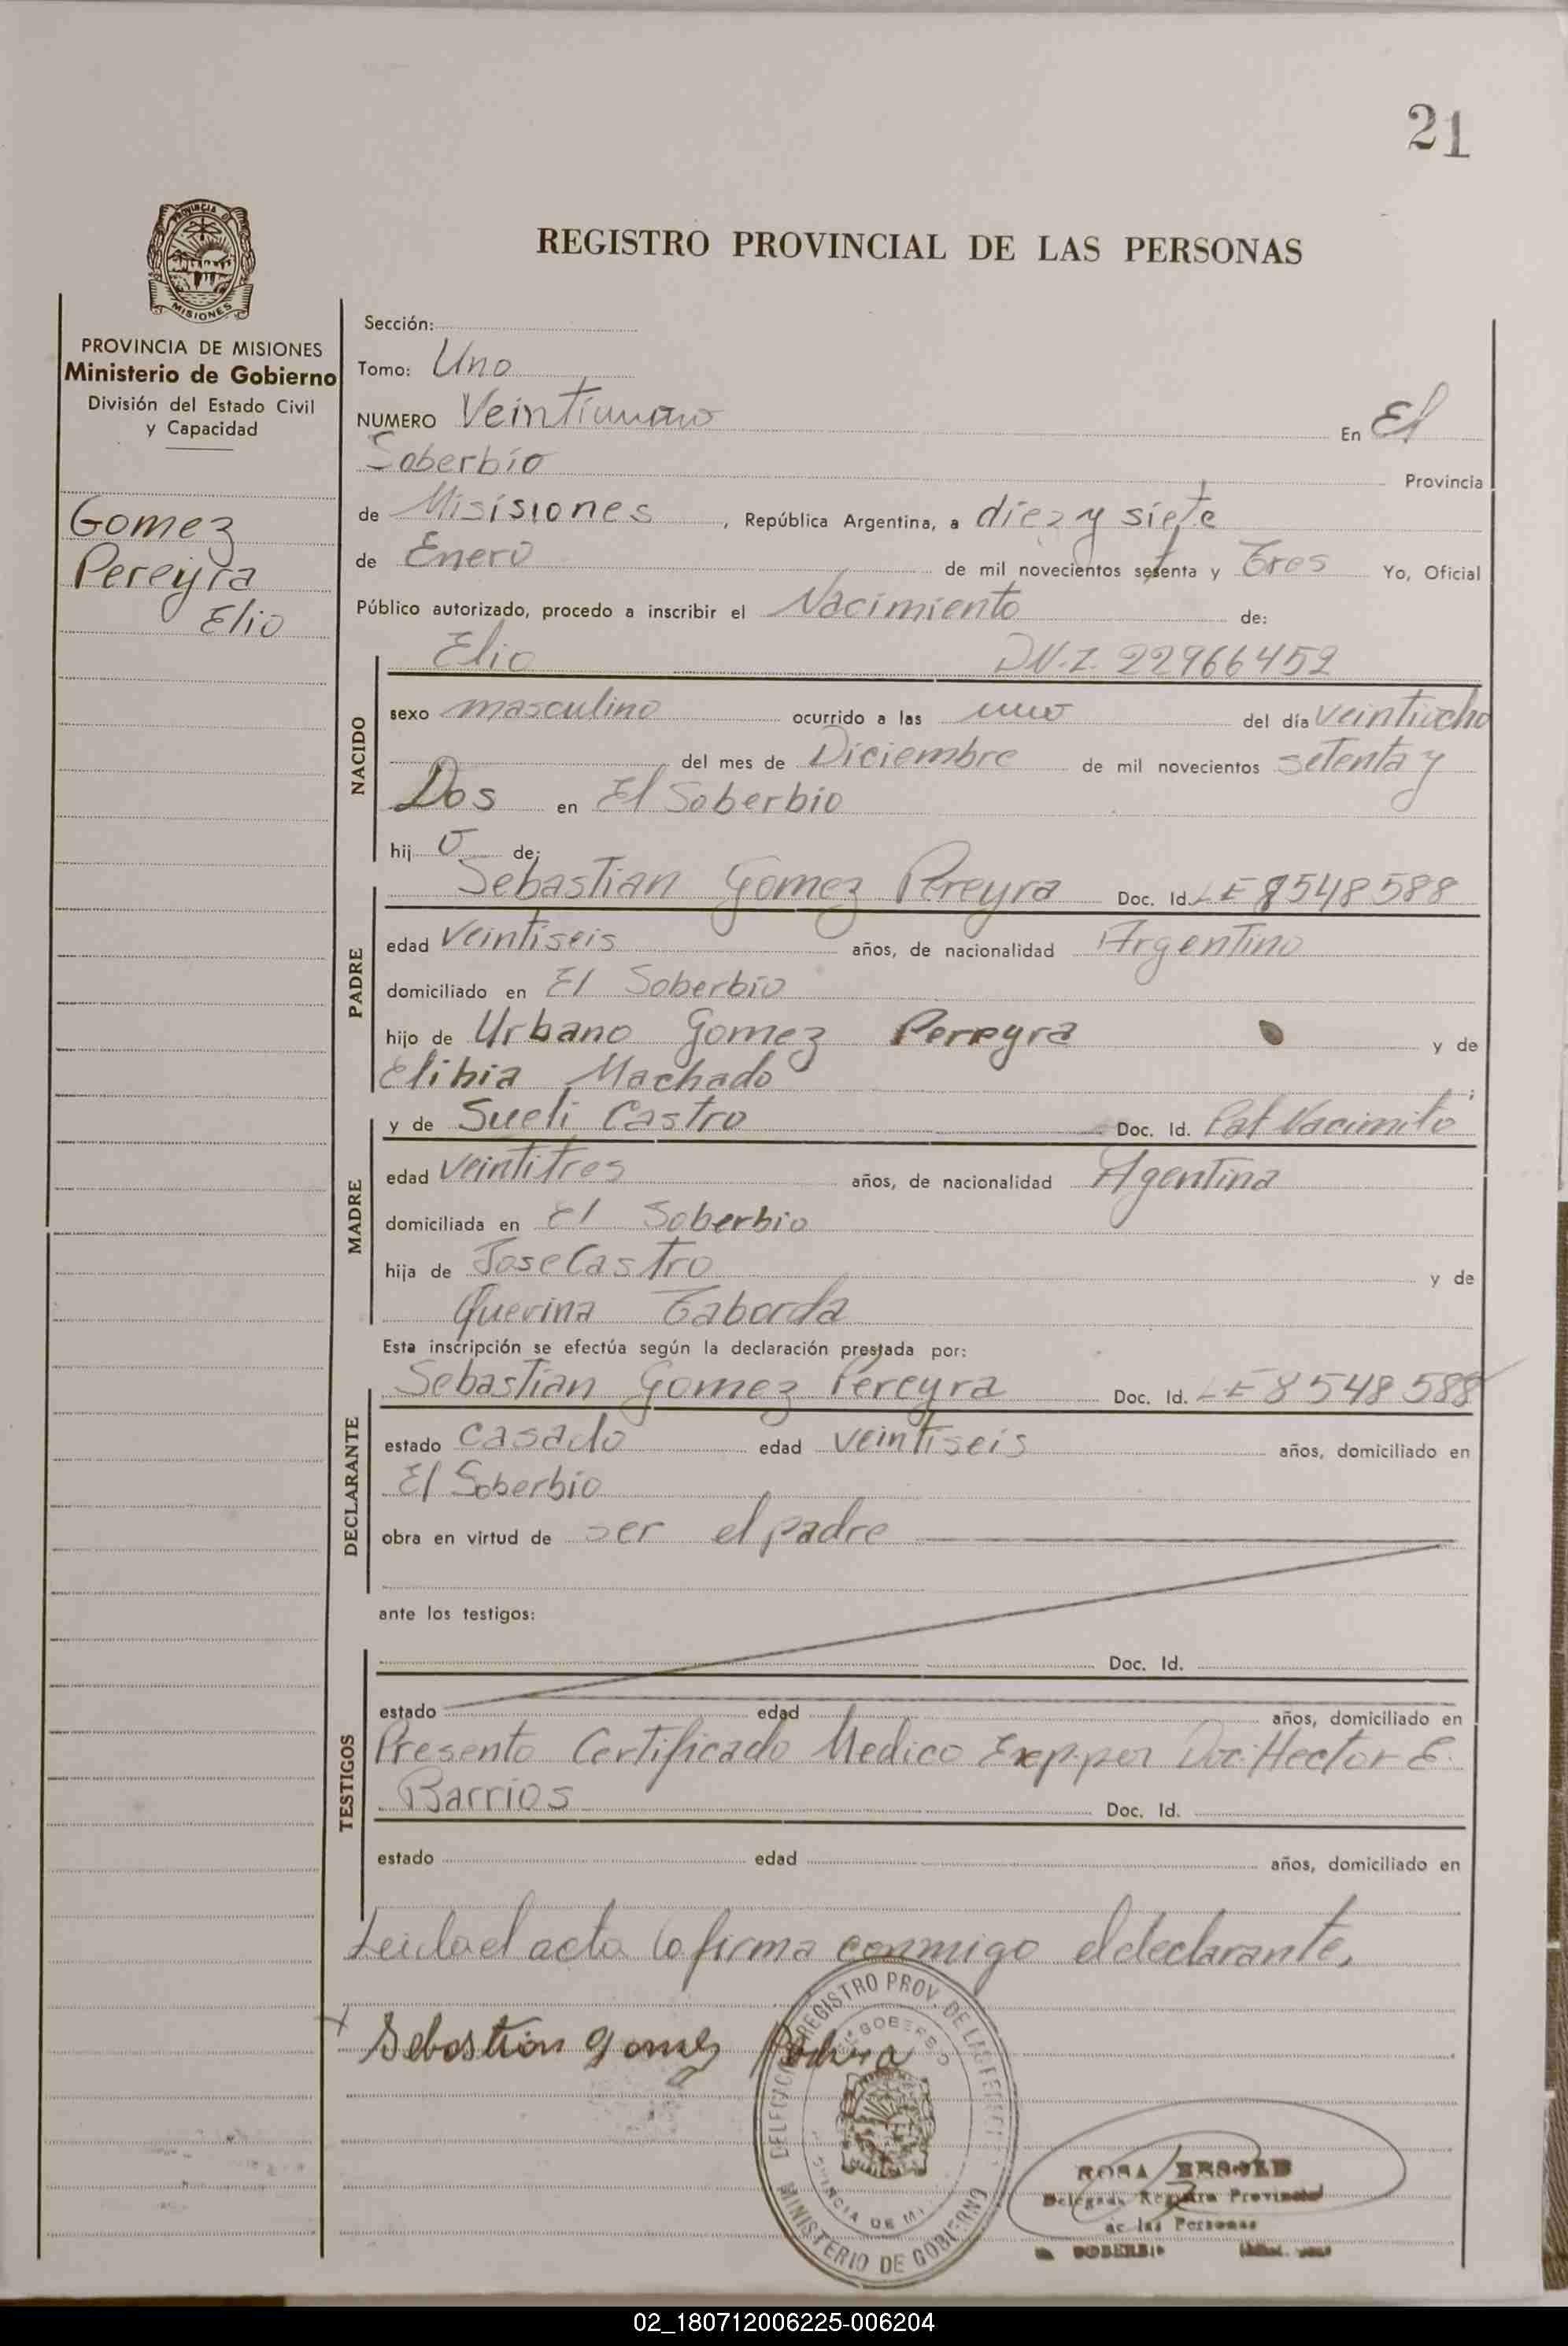 21
PROVINCIA DE
MISIONES
REGISTRO PROVINCIAL DE LAS PERSONAS
PROVINCIA DE MISIONES
Ministerio de Gobierno
División del Estado Civil
y Capacidad
Gomez
Pereyra
Elio
Sección:
Tomo: Uno
NUMERO Veintiuno En El
Soberbio Provincia
de Misisiones, República Argentina, a diez y siete
de Enero de mil novecientos setenta y Tres Yo, Oficial
Público autorizado, procedo a inscribir el Nacimiento de:
Elio D.N.I. 22966452
NACIDO
sexo masculino ocurrido a las uno del día veintiocho
del mes de Diciembre de mil novecientos setenta y
Dos en El Soberbio
hij o de:
PADRE
Sebastian Gomez Pereyra Doc. Id. LE 8548588
edad veintiseis años, de nacionalidad Argentino
domiciliado en El Soberbio
hijo de Urbano Gomez Pereyra y de
Elibia Machado;
MADRE
y de Sueli Castro Doc. Id. Nacimito
edad veintitres años, de nacionalidad Agentina
domiciliada en El Soberbio
hija de Jose Castro y de
Querina Taborda
Esta inscripción se efectúa según la declaración prestada por:
DECLARANTE
Sebastian Gomez Pereyra Doc. Id. LE 8548588
estado casado edad veintiseis años, domiciliado en
El Soberbio
obra en virtud de ser el padre
ante los testigos:
TESTIGOS
Doc. Id.
estado edad años, domiciliado en
Presento Certificado Medico Exp. por Doc. Hector E.
Barrios Doc. Id.
estado edad años, domiciliado en
Leida el acta la firma conmigo el declarante,
Sebastián gomez
DELEGACION REGISTRO PROV. DE LAS PERS
EL SOBERBIO
PROVINCIA DE MI
MINISTERIO DE GOBIERNO
ROSA
Delegada Registro Provincial
de las Personas
SOBERBIO
02_180712006225-006204